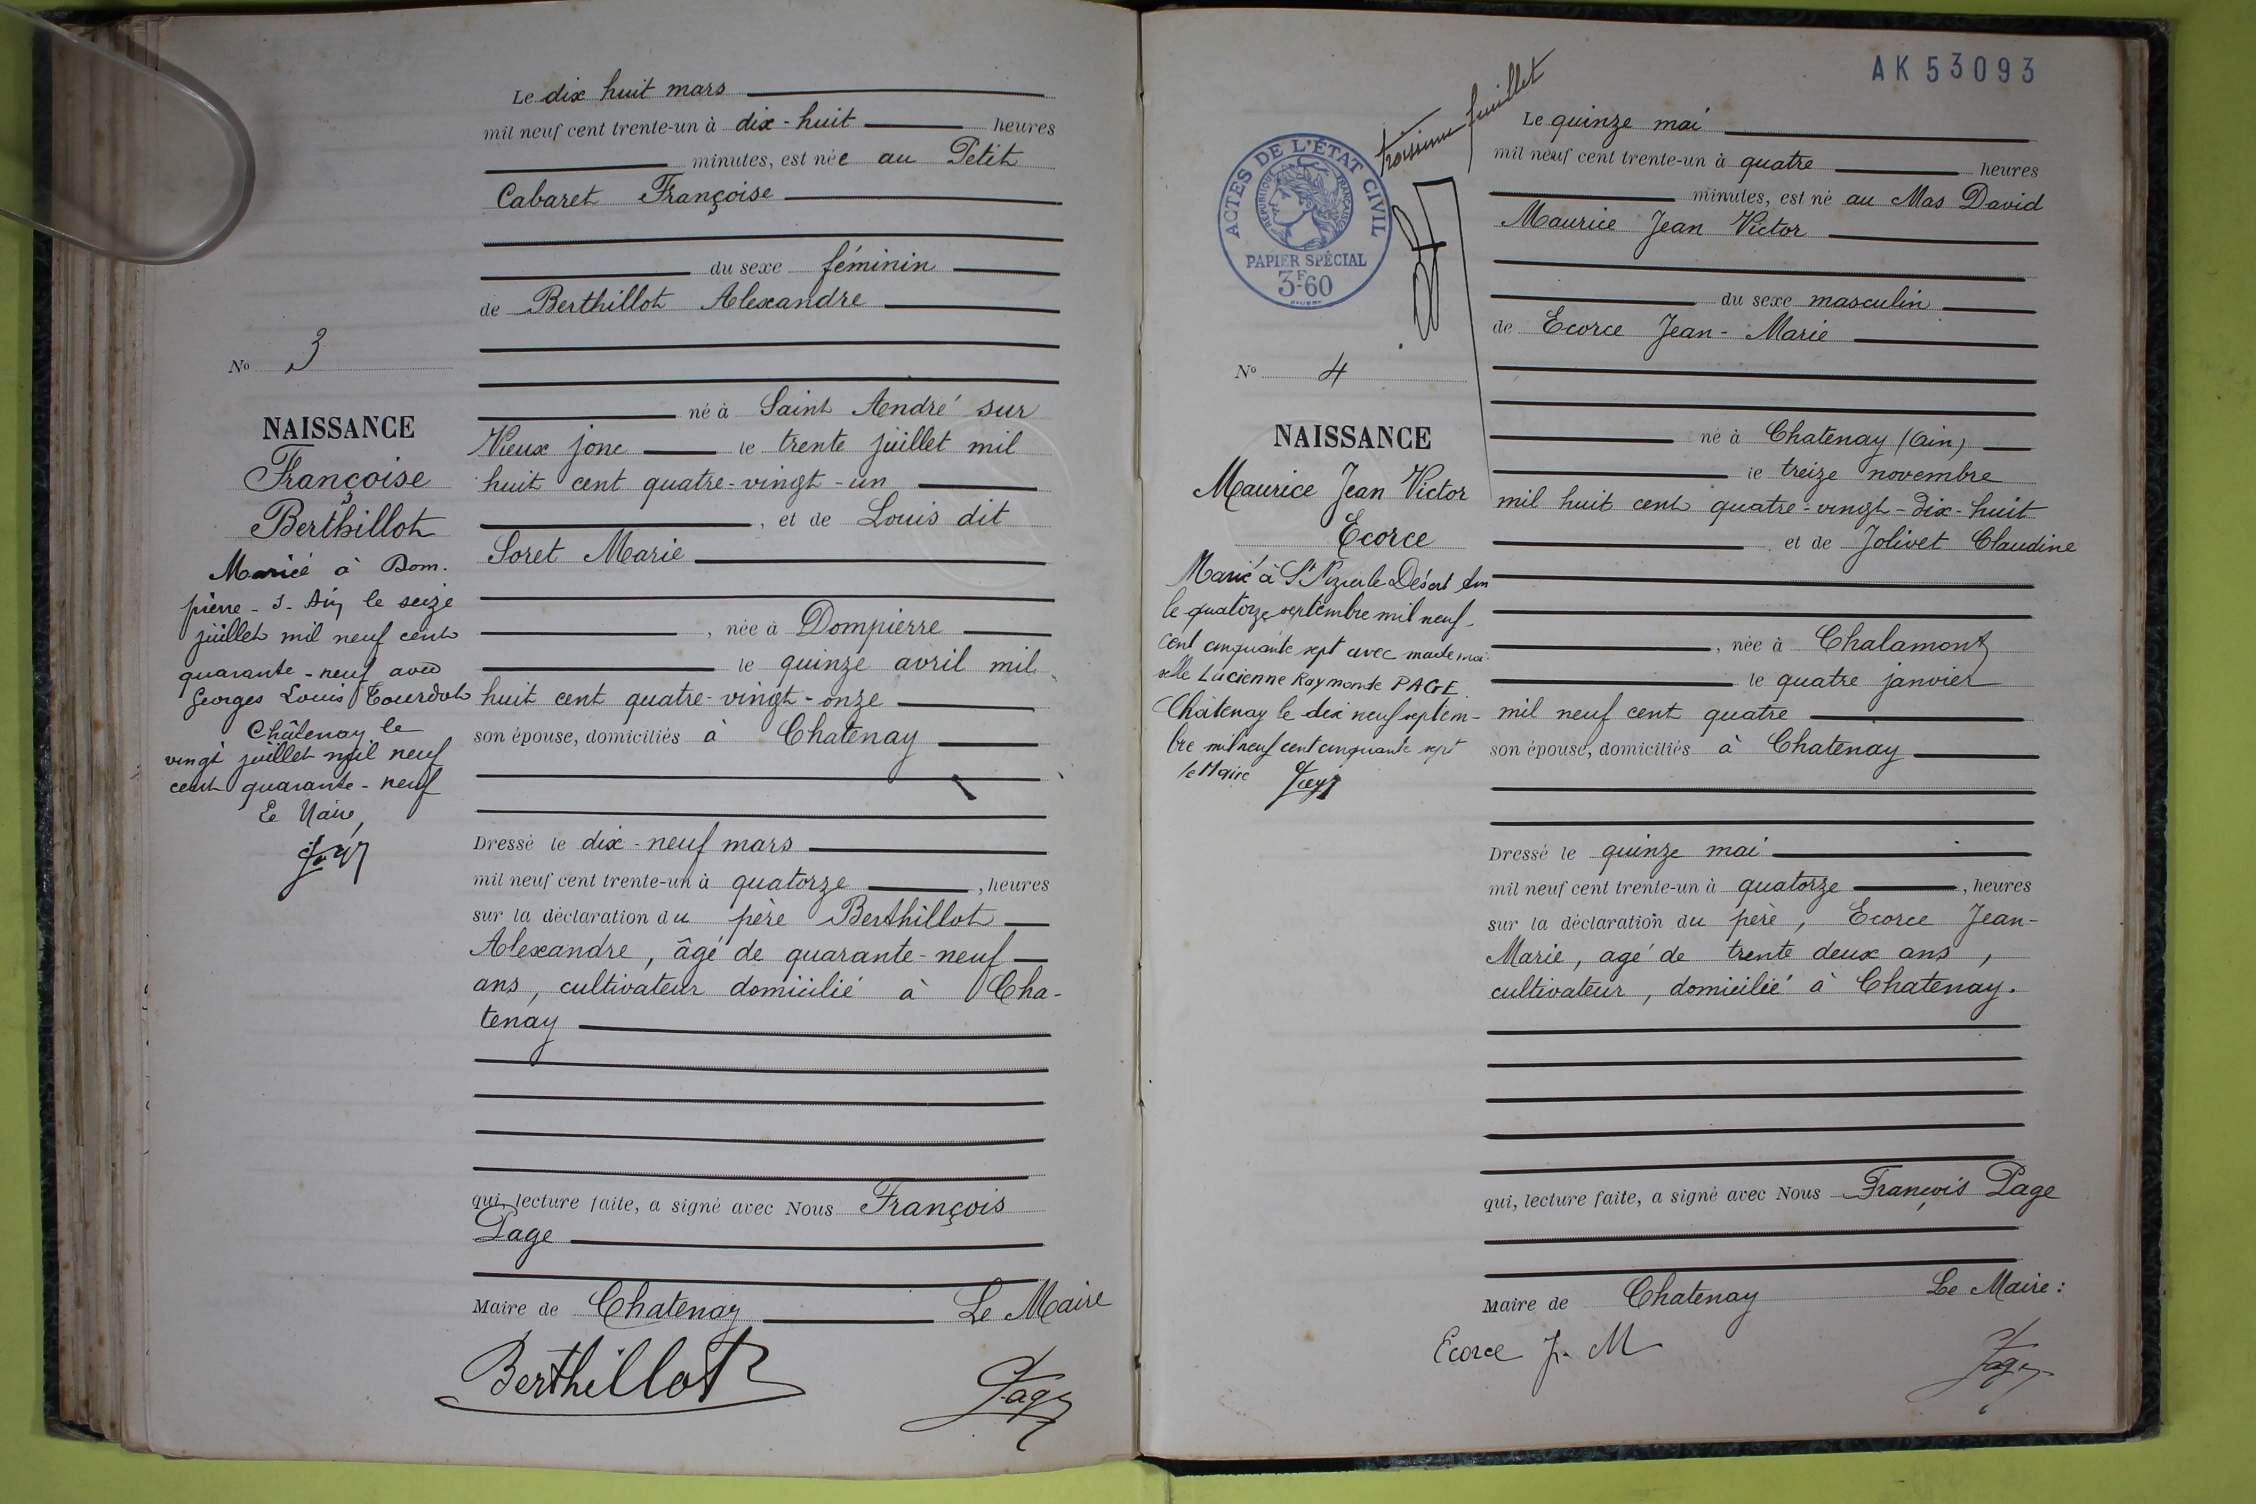 Le dix huit mars
mil neuf cent trente-un à dix-huit heures
minutes, est née au Petit
Cabaret Françoise
du sexe féminin
de Berthillot Alexandre
né à Saint André sur
Vieux jonc le trente juillet mil
huit cent quatre-vingt-un
, et de Louis dit
Soret Marie
, née à Dompierre
le quinze avril mil
huit cent quatre-vingt-onze
son épouse, domiciliés à Chatenay
Dressé le dix-neuf mars
mil neuf cent trente-un à quatorze , heures
sur la déclaration du père Berthillot
Alexandre, âgé de quarante-neuf
ans, cultivateur domicilié à Cha-
tenay
qui, lecture faite, a signé avec Nous François
Page
Maire de Chatenay Le Maire
Berthillot
Page
No 3
NAISSANCE
Françoise
Berthillot
Mariée à Dom.
pierre-s-Ain le seize
juillet mil neuf cent
quarante-neuf avec
Georges Louis Tourdot
Châtenay le
vingt juillet mil neuf
cent quarante-neuf
Le Maire,
AK 53093
troisième feuillet
ACTES DE L'ÉTAT CIVIL
RÉPUBLIQUE FRANÇAISE
PAPIER SPÉCIAL
3F60
Le quinze mai
mil neuf cent trente-un à quatre heures
minutes, est né au Mas David
Maurice Jean Victor
du sexe masculin
de Ecorce Jean-Marie
né à Chatenay (Ain)
le treize novembre
mil huit cent quatre-vingt-dix-huit
et de Jolivet Claudine
, née à Chalamont
le quatre janvier
mil neuf cent quatre
son épouse, domiciliés à Chatenay
Dressé le quinze mai
mil neuf cent trente-un à quatorze , heures
sur la déclaration du père, Ecorce Jean-
Marie, agé de trente deux ans,
cultivateur, domicilié à Chatenay.
qui, lecture faite, a signé avec Nous François Page
Maire de Chatenay Le Maire:
Ecorce J. M
Page
No 4
NAISSANCE
Maurice Jean Victor
Ecorce
Marié à St Nizier le Désert Ain
le quatorze septembre mil neuf
cent cinquante sept avec mademoi-
selle Lucienne Raymonde PAGE.
Châtenay le dix neuf septem-
bre mil neuf cent cinquante sept
le Maire